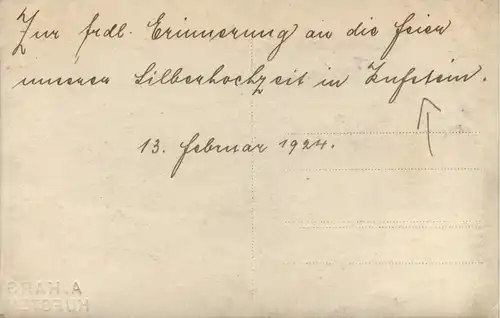 Zur frdl. Erinnerung an die Feier
unserer Silberhochzeit in Kufstein.
13. Februar 1924.
A. KARG
KUFSTEIN